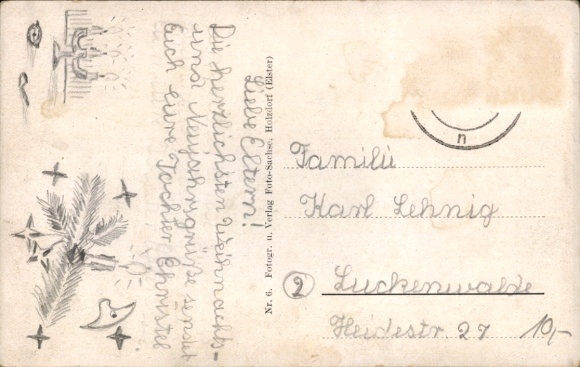 Liebe Eltern!
Die herzlichsten Weihnachts-
und Neujahrsgrüße sendet
Euch eure Tochter Christel
Nr. 6. Fotogr. u. Verlag Foto-Sachse, Holzdorf (Elster)
n
Familie
Karl Lehnig
2 Luckenwalde
Heidestr 27
10,-